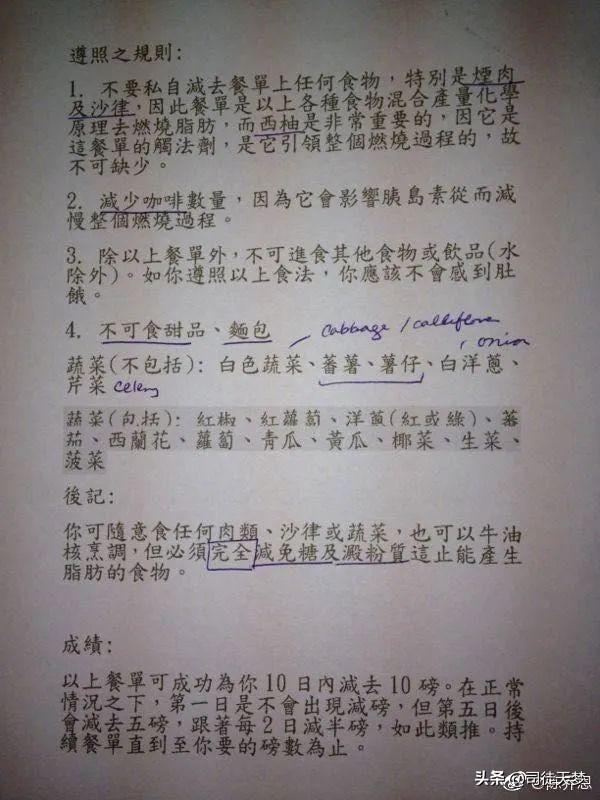 遵照之規則:
1. 不要私自減去餐單上任何食物，特別是煙肉
及沙律，因此餐單是以上各種食物混合產量化學
原理去燃燒脂肪，而西柚是非常重要的，因它是
這餐單的觸法劑，是它引領整個燃燒過程的，故
不可缺少。
2. 減少咖啡數量，因為它會影響胰島素從而減
慢整個燃燒過程。
3. 除以上餐單外，不可進食其他食物或飲品(水
除外)。如你遵照以上食法，你應該不會感到肚
餓。
4. 不可食甜品、麵包
cabbage / calliflower
, onion
蔬菜(不包括): 白色蔬菜、蕃薯、薯仔、白洋蔥、
芹菜 celery
蔬菜(包括): 紅椒、紅蘿蔔、洋蔥(紅或綠)、蕃
茄、西蘭花、蘿蔔、青瓜、黃瓜、椰菜、生菜、
菠菜
後記:
你可隨意食任何肉類、沙律或蔬菜，也可以牛油
核烹調，但必須完全減免糖及澱粉質這止能產生
脂肪的食物。
成績:
以上餐單可成功為你10日內減去10磅。在正常
情況之下，第一日是不會出現減磅，但第五日後
會減去五磅，跟著每2日減半磅，如此類推。持
續餐單直到至你要的磅數為止。
头条@司徒天梦